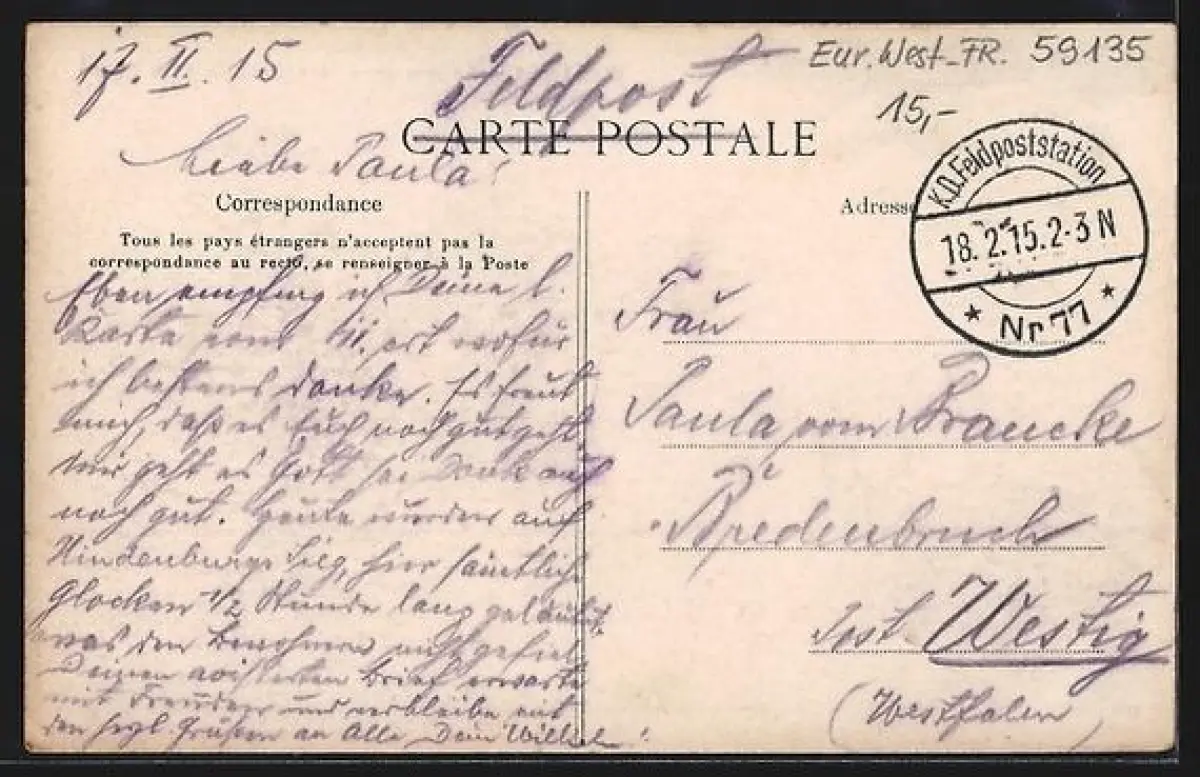 17. II. 15
Feldpost
Eur. West-FR. 59135
15,-
CARTE POSTALE
Liebe Paula!
Correspondance
Adresse
Tous les pays étrangers n'acceptent pas la
correspondance au recto, se renseigner à la Poste
K.D. Feldpoststation
18. 2. 15. 2-3 N
* Nr 77 *
Eben empfing ich Deine l.
Karte vom wofür
ich bestens danke. Es freut
mich, daß es Euch noch gut geht
mir geht es Gott sei Dank auch
noch gut. Heute wurden auf
Hindenburgs Sieg, hier sämtliche
Glocken 1/2 Stunde lang geläutet.
was den Bewohnern nicht gefiel
Deinen Brief erwarte
mit Freuden und verbleibe mit
den herzl. Grüßen an Alle Dein Wilhelm!
Frau
Paula vom Braucke
Bredenbruch
Post Westig
(Westfalen)